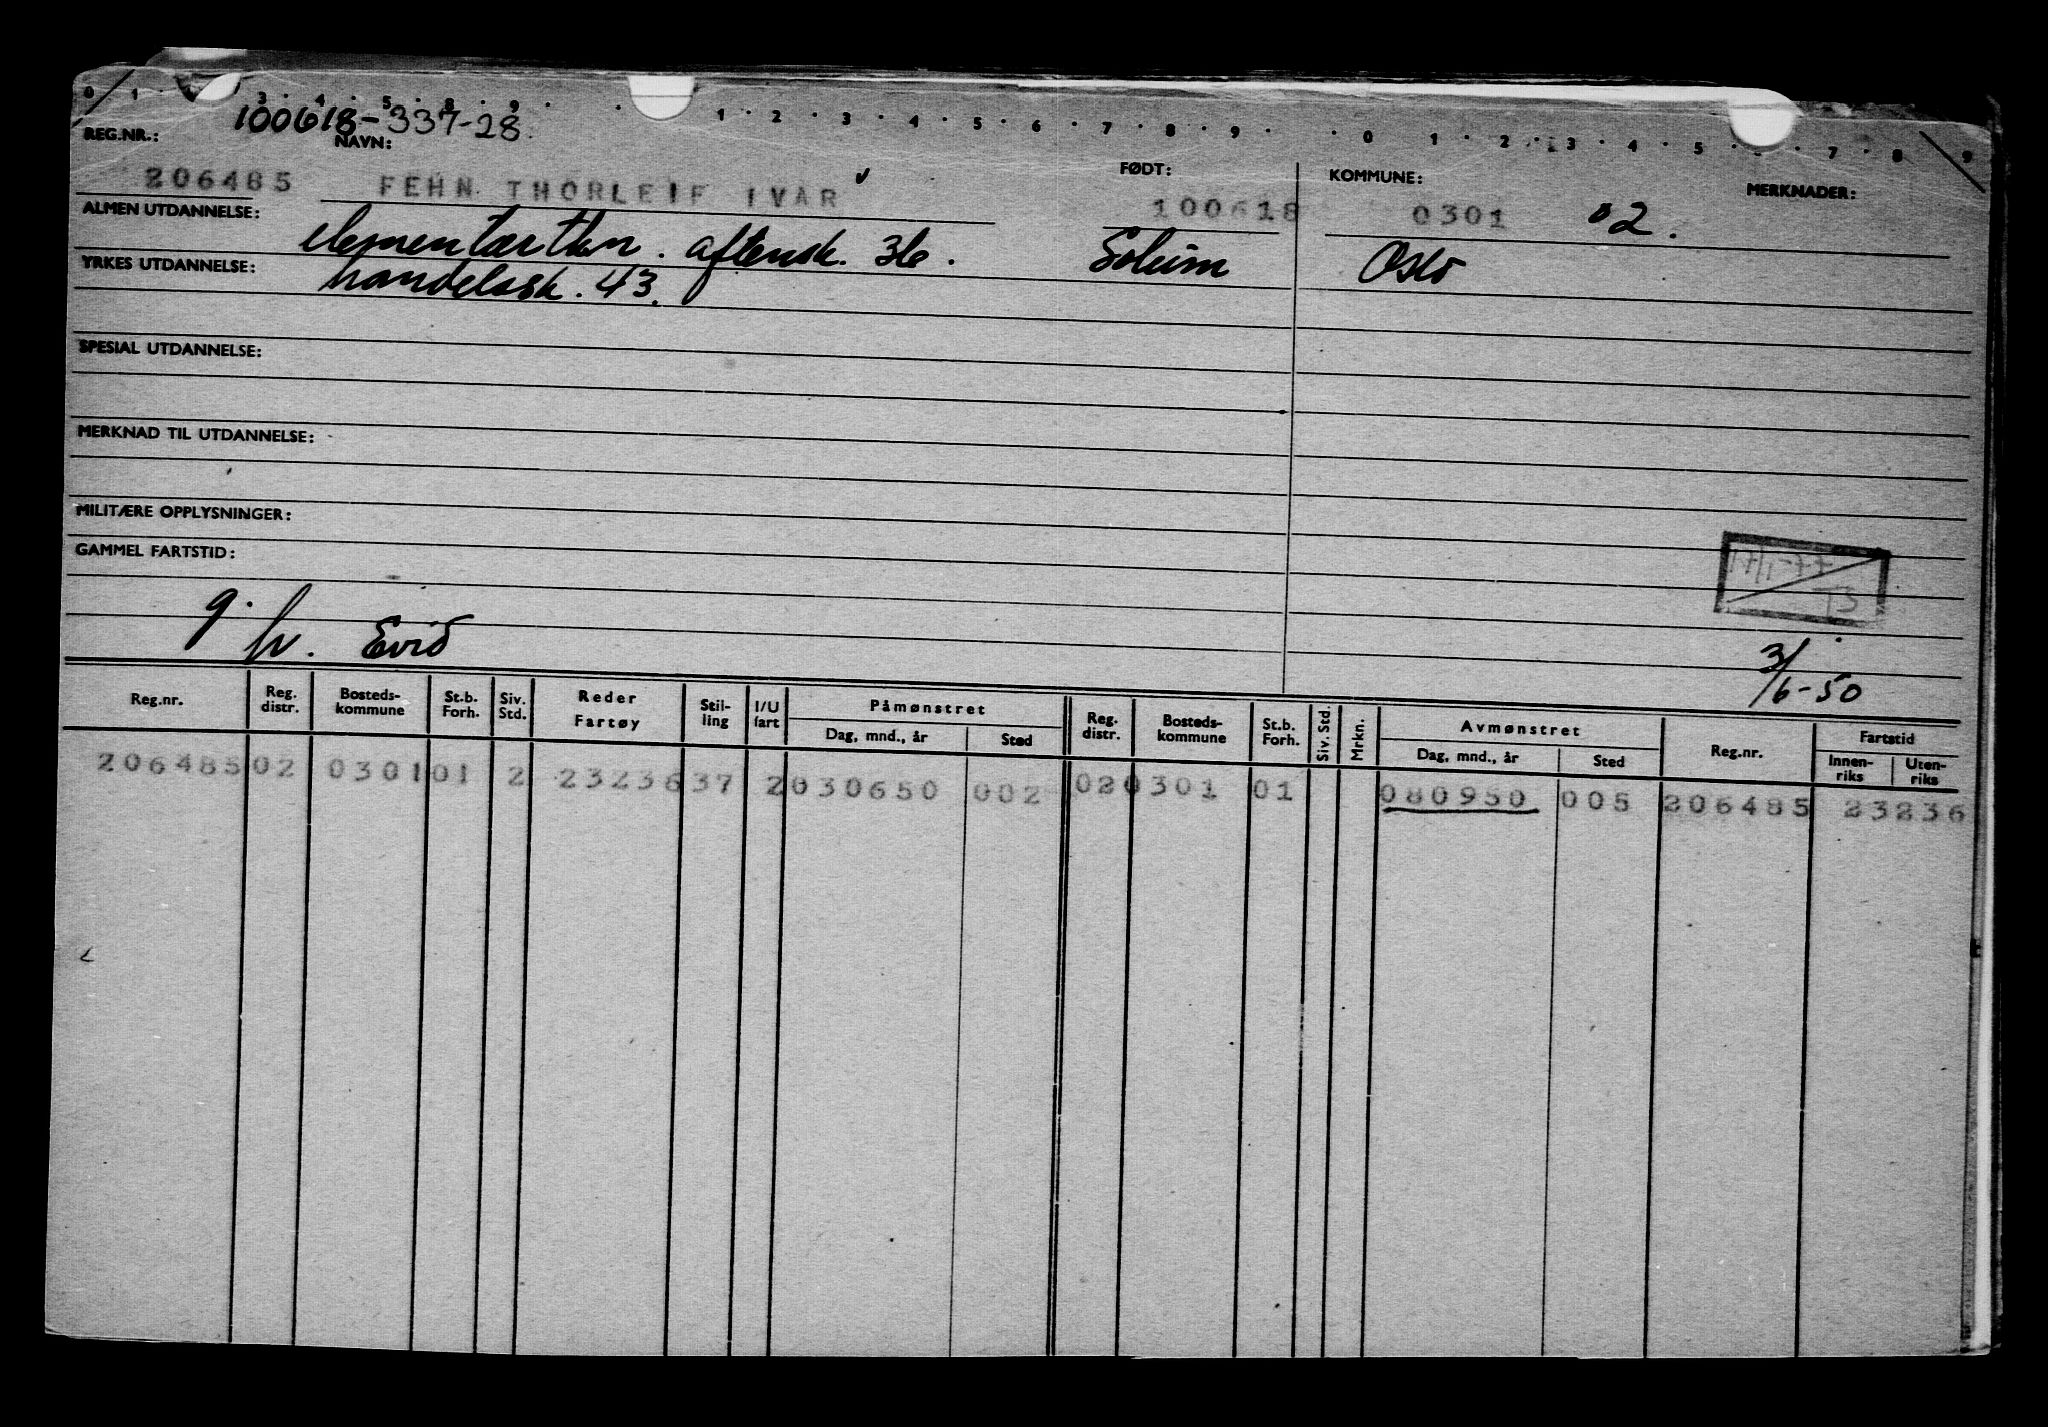 0 1 3 4 5 8 9 1 2 3 4 5 6 7 8 9 0 1 2 3 4 5 7 8 9
100618-337-28.
REG.NR.: NAVN: FØDT: KOMMUNE: MERKNADER:
206485 FEHN THORLEIF IVAR 100618 0301 02.
ALMEN UTDANNELSE: elementærtkn. aftensk. 36. Solum Oslo
YRKES UTDANNELSE: handelssk. 43.
SPESIAL UTDANNELSE:
MERKNAD TIL UTDANNELSE:
MILITÆRE OPPLYSNINGER:
GAMMEL FARTSTID:
17/1-77
T3
g.
hv. Evid
3/6-50
Reg.nr. Reg. distr. Bosteds-kommune St.b. Forh. Siv. Std. Reder Fartøy Stil-ling I/U fart Påmønstret Dag, mnd., år Sted Reg. distr. Bosteds-kommune St.b. Forh. Siv. Std. Mrkn. Avmønstret Dag, mnd., år Sted Reg.nr. Fartstid Innen-riks Uten-riks
206485 02 0301 01 2 23236 37 2 030650 002 02 0301 01 080950 005 206485 23236